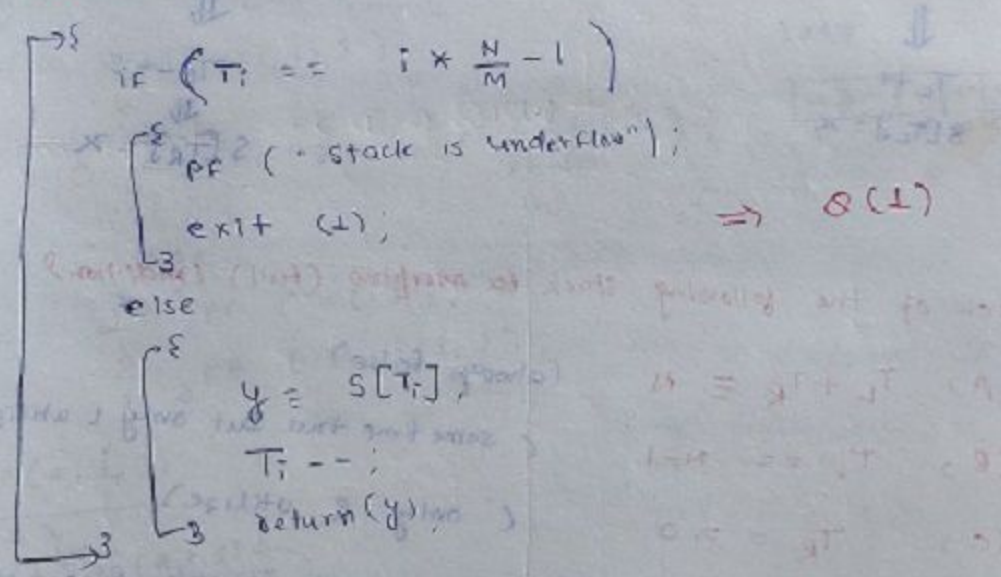 {
if (Ti == i * N/M - 1)
{
pf ("stack is underflow");
exit (1);
}
⇒ θ(1)
else
{
y = S[Ti];
Ti --;
return(y);
}
}